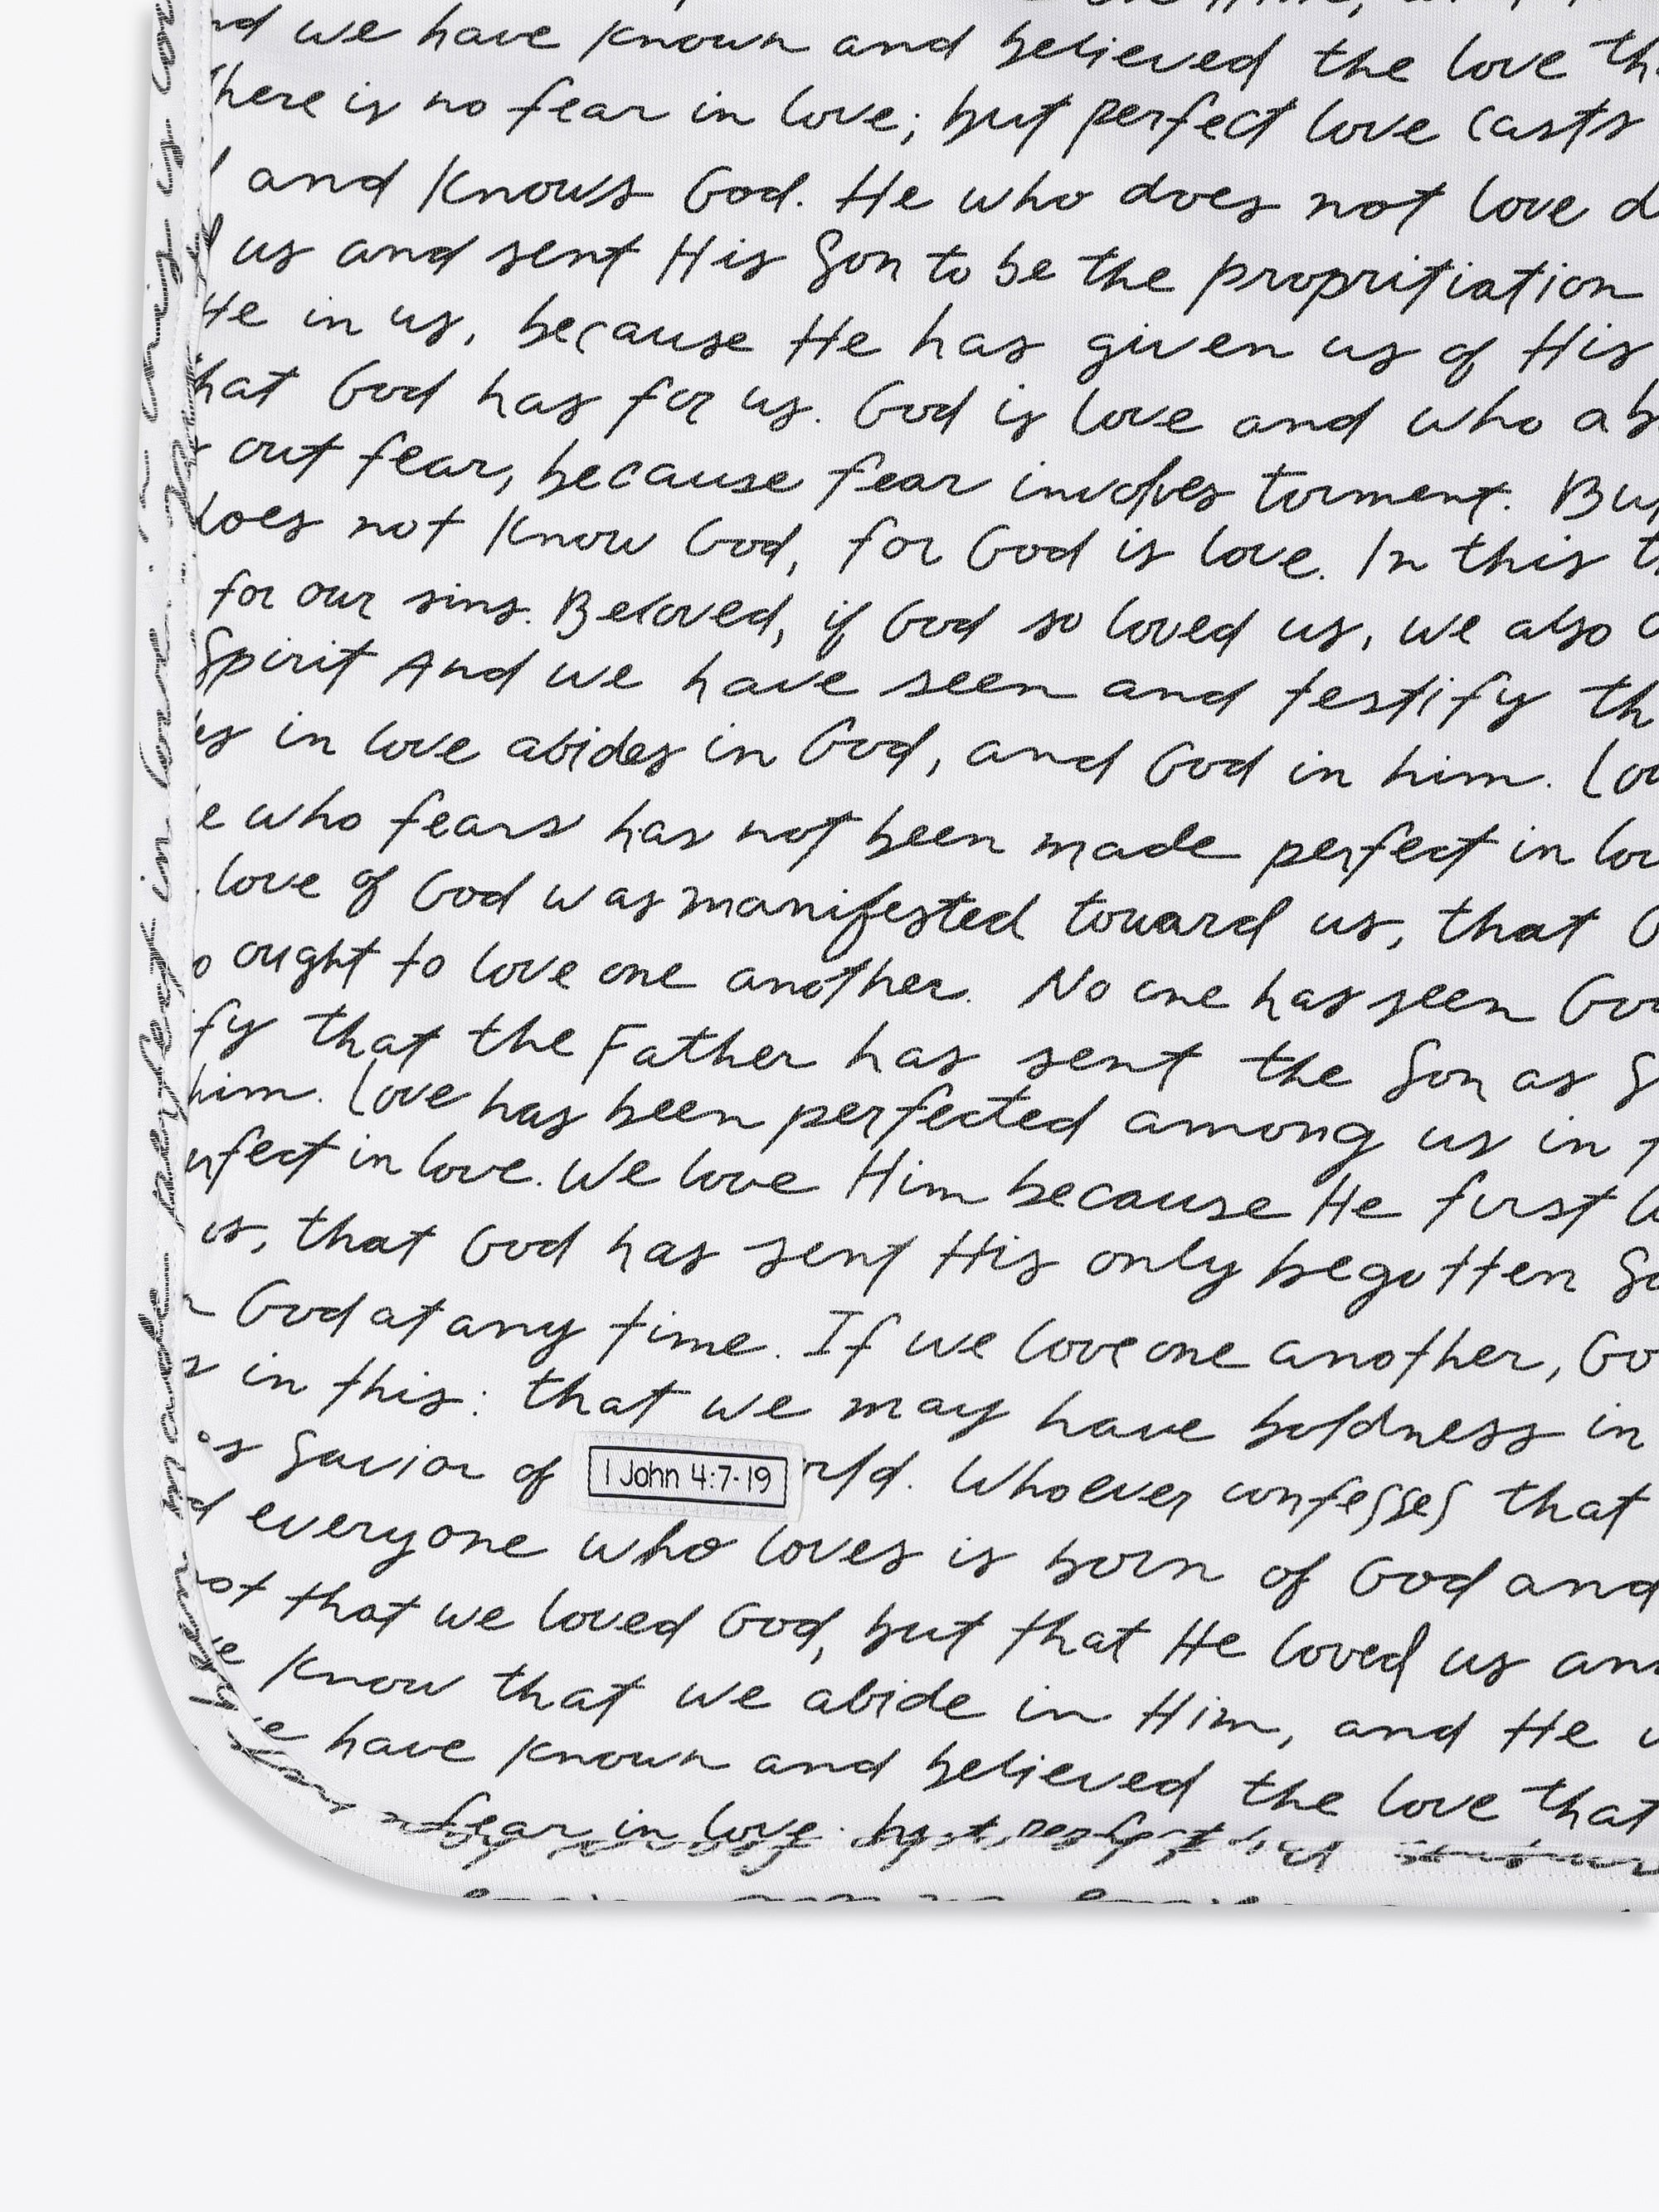 we have known and believed the love
there is no fear in love; but perfect love casts
and knows God. He who does not love
us and sent His Son to be the propritiation
He in us, because He has given us of His
that God has for us. God is love and who
out fear, because fear involves torment.
does not know God, for God is love. In this
for our sins. Beloved, if God so loved us, we also
Spirit And we have seen and testify
in love abides in God, and God in him.
who fears has not been made perfect in
love of God was manifested toward us, that
ought to love one another. No one has seen
that the Father has sent the Son as
him. Love has been perfected among us in
in love. We love Him because He first
us, that God has sent His only begotten
God at any time. If we love one another,
in this: that we may have boldness in
Savior of
1 John 4:7-19
Whoever confesses that
everyone who loves is born of God and
that we loved God, but that He loved us
know that we abide in Him, and He
have known and believed the love that
fear in love
made perfect in love.